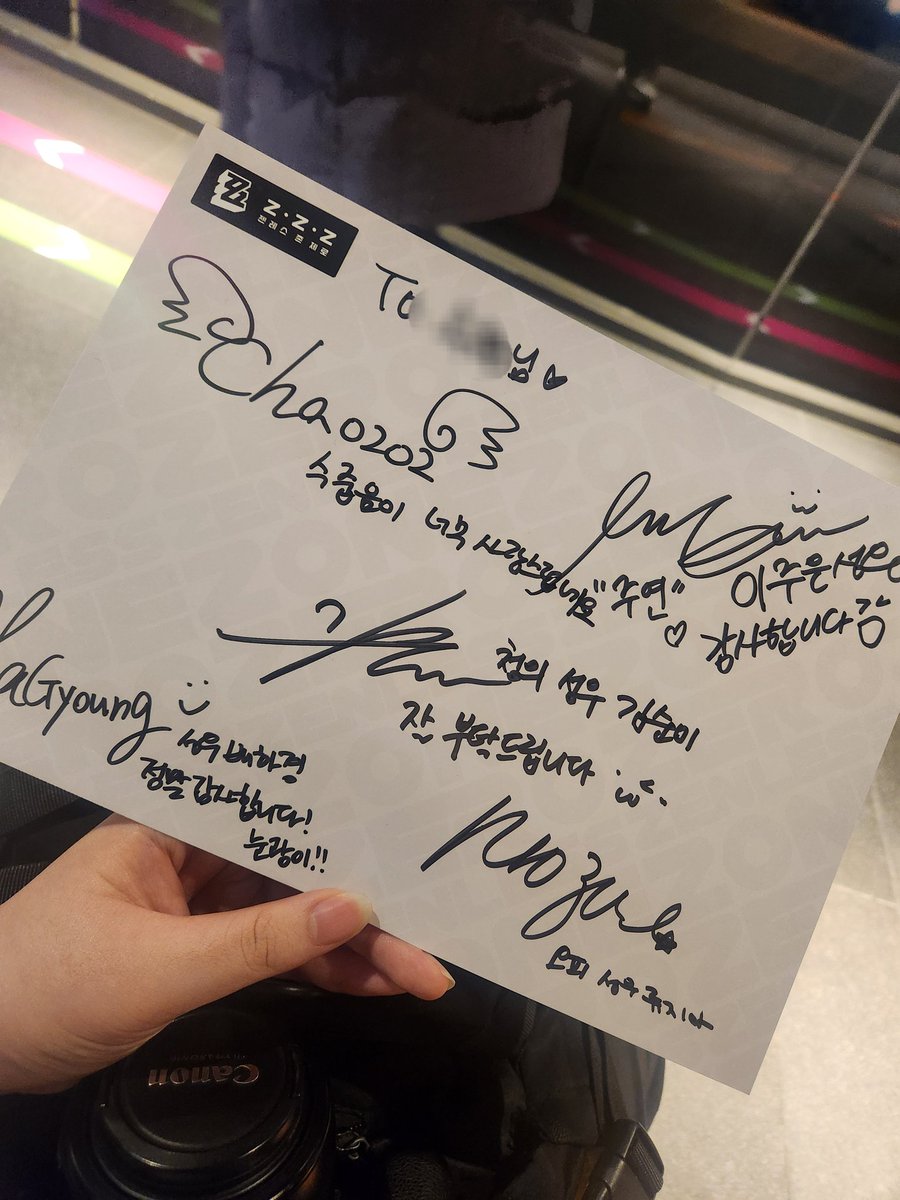 Z·Z·Z
젠레스 존 제로
To 님♡
Cha0202
너무 사랑스럽네요 "주연" ♡
이주은 성우
감사합니다
청의 성우 김순미
잘 부탁드립니다
HaGyoung
성우 배하경
정말 감사합니다!
눈광이!!
성우 류지아
Canon